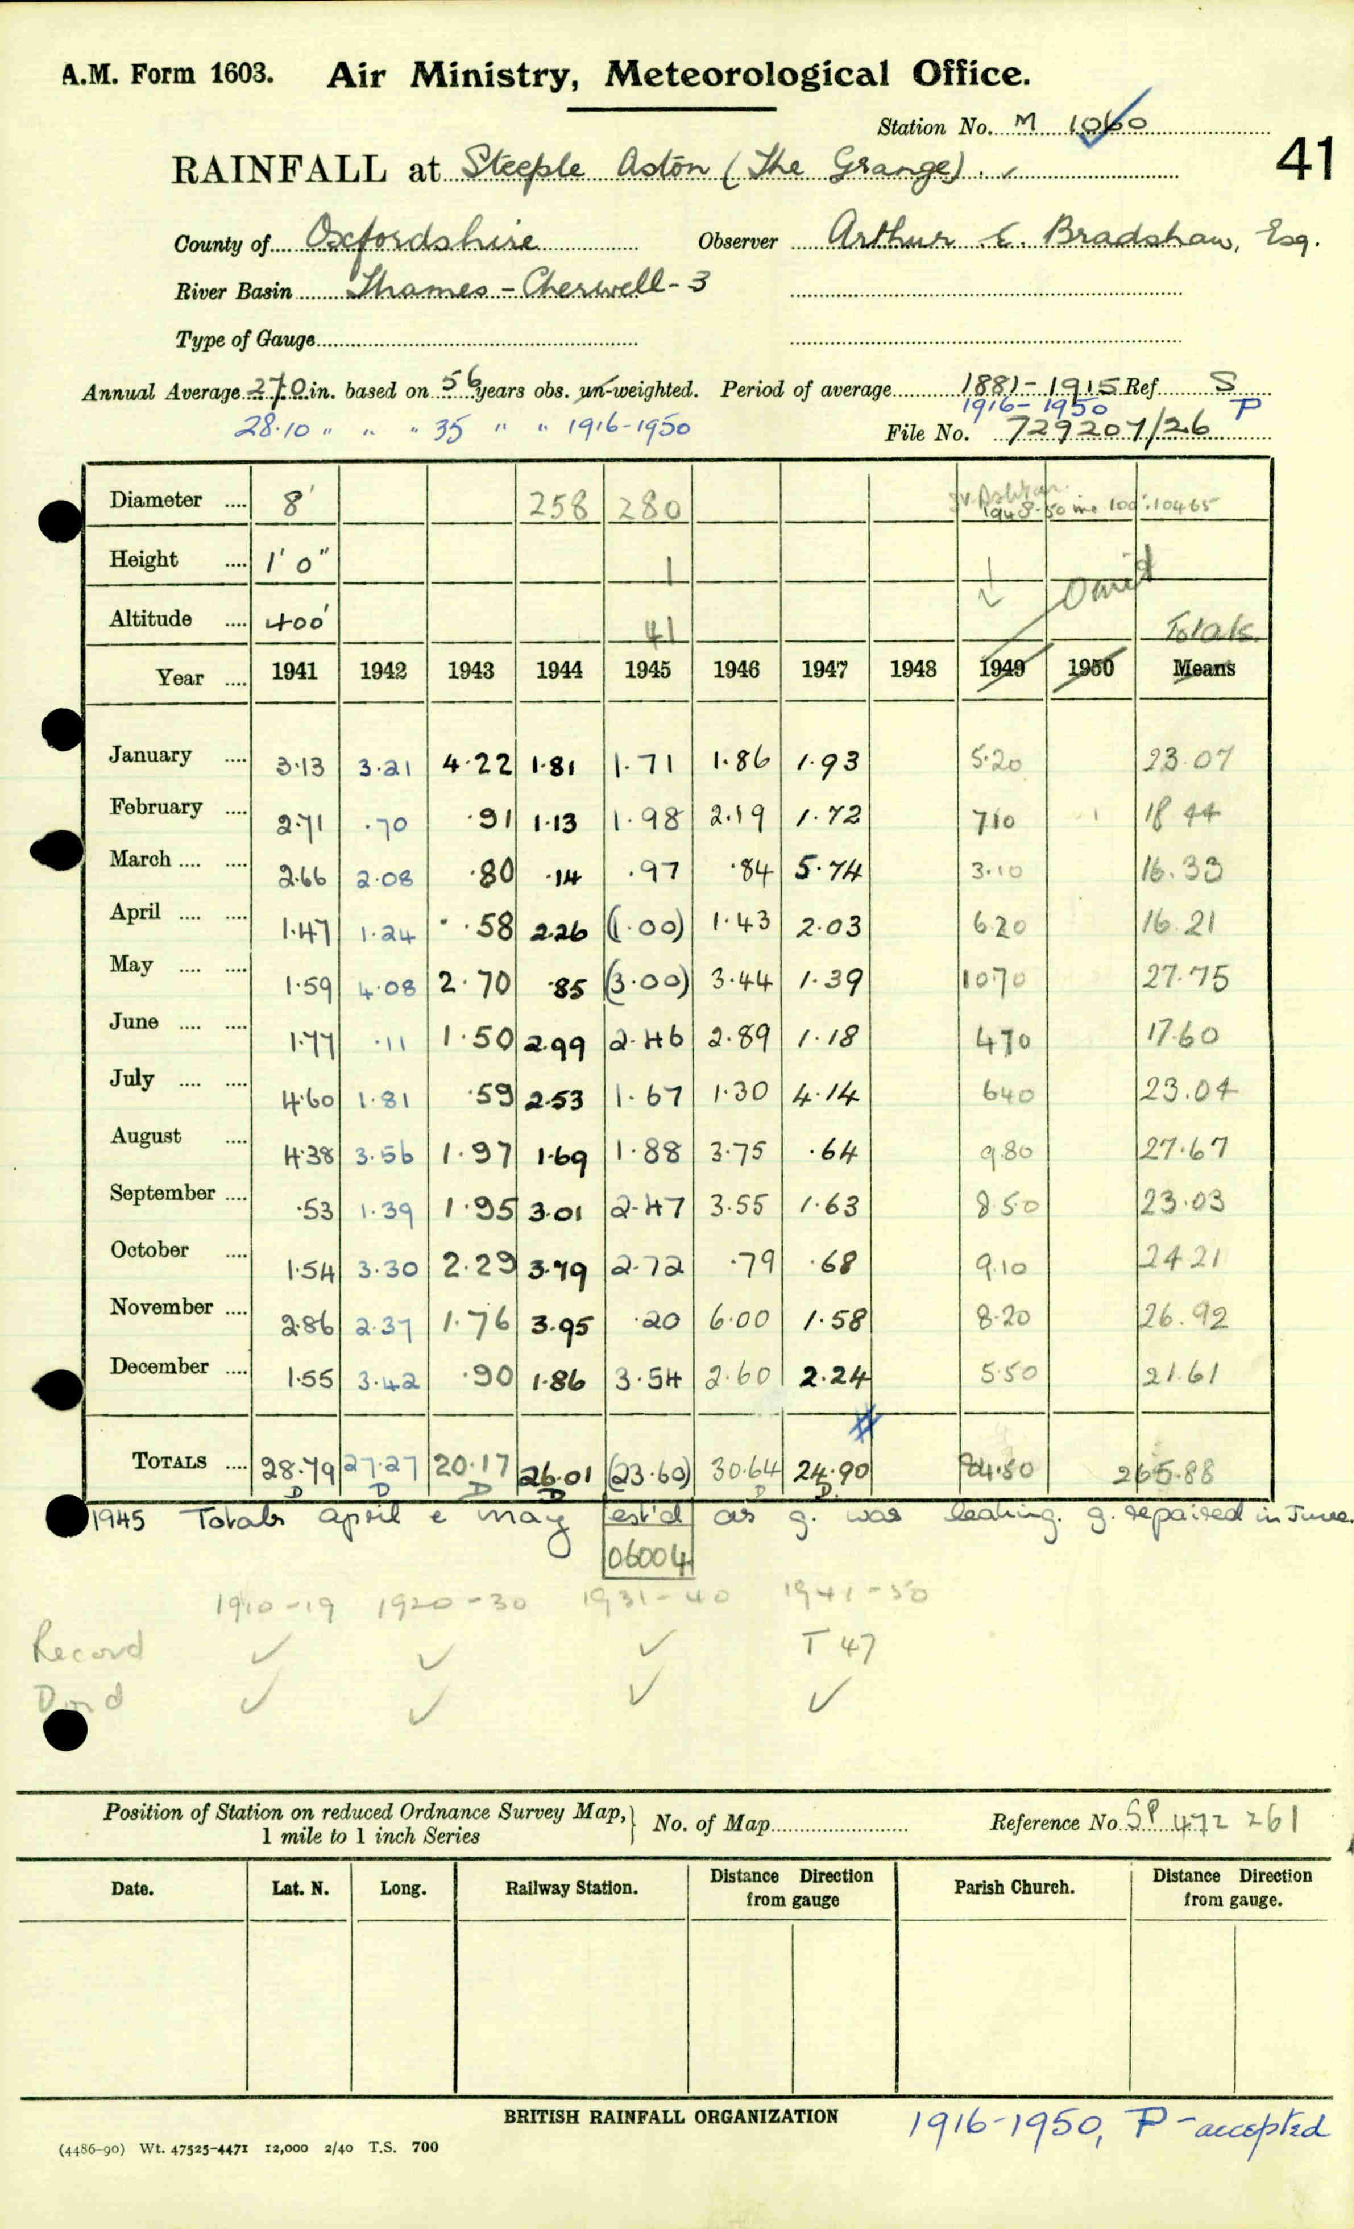 A.M. Form 1603. Air Ministry, Meteorological Office.
Station No. M 1060
41
RAINFALL at Steeple Aston (The Grange).
County of Oxfordshire Observer Arthur E. Bradshaw, Esq.
River Basin Thames - Cherwell - 3
Type of Gauge
Annual Average 27.0 in. based on 56 years obs. un-weighted. Period of average 1881-1915 Ref S
1916-1950 P
28.10 " " " 35 " " 1916-1950
File No. 729207/26
Diameter .... 8" 258 280 1948-50 100 .10465
Height .... 1' 0" 1
Omit
Altitude .... 400' 41 Totals.
Year .... 1941 1942 1943 1944 1945 1946 1947 1948 1949 1950 Means
January .... 3.13 3.21 4.22 1.81 1.71 1.86 1.93 5.20 23.07
February .... 2.71 .70 .91 1.13 1.98 2.19 1.72 7.10 18.44
March .... .... 2.66 2.08 .80 .14 .97 .84 5.74 3.10 16.33
April .... .... 1.47 1.24 .58 2.26 (1.00) 1.43 2.03 6.20 16.21
May .... .... 1.59 4.08 2.70 .85 (3.00) 3.44 1.39 10.70 27.75
June .... .... 1.77 .11 1.50 2.99 2.46 2.89 1.18 4.70 17.60
July .... .... 4.60 1.81 .59 2.53 1.67 1.30 4.14 6.40 23.04
August .... 4.38 3.56 1.97 1.69 1.88 3.75 .64 9.80 27.67
September .... .53 1.39 1.95 3.01 2.47 3.55 1.63 8.50 23.03
October .... 1.54 3.30 2.29 3.79 2.72 .79 .68 9.10 24.21
November .... 2.86 2.37 1.76 3.95 .20 6.00 1.58 8.20 26.92
December .... 1.55 3.42 .90 1.86 3.54 2.60 2.24 5.50 21.61
TOTALS .... 28.79 27.27 20.17 26.01 (23.60) 30.64 24.90 84.50 265.88
D D D D D D
1945 Totals April & May est'd as g. was leaking. g. repaired in June.
06004
1910-19 1920-30 1931-40 1941-50
Record ✓ ✓ ✓ T 47
✓ ✓ ✓ ✓
Position of Station on reduced Ordnance Survey Map, 1 mile to 1 inch Series } No. of Map Reference No. SP 472 261
Date. Lat. N. Long. Railway Station. Distance from gauge Direction Parish Church. Distance from gauge. Direction
BRITISH RAINFALL ORGANIZATION
1916-1950, P - accepted
(4486-90) Wt. 47525-4471 12,000 2/40 T.S. 700